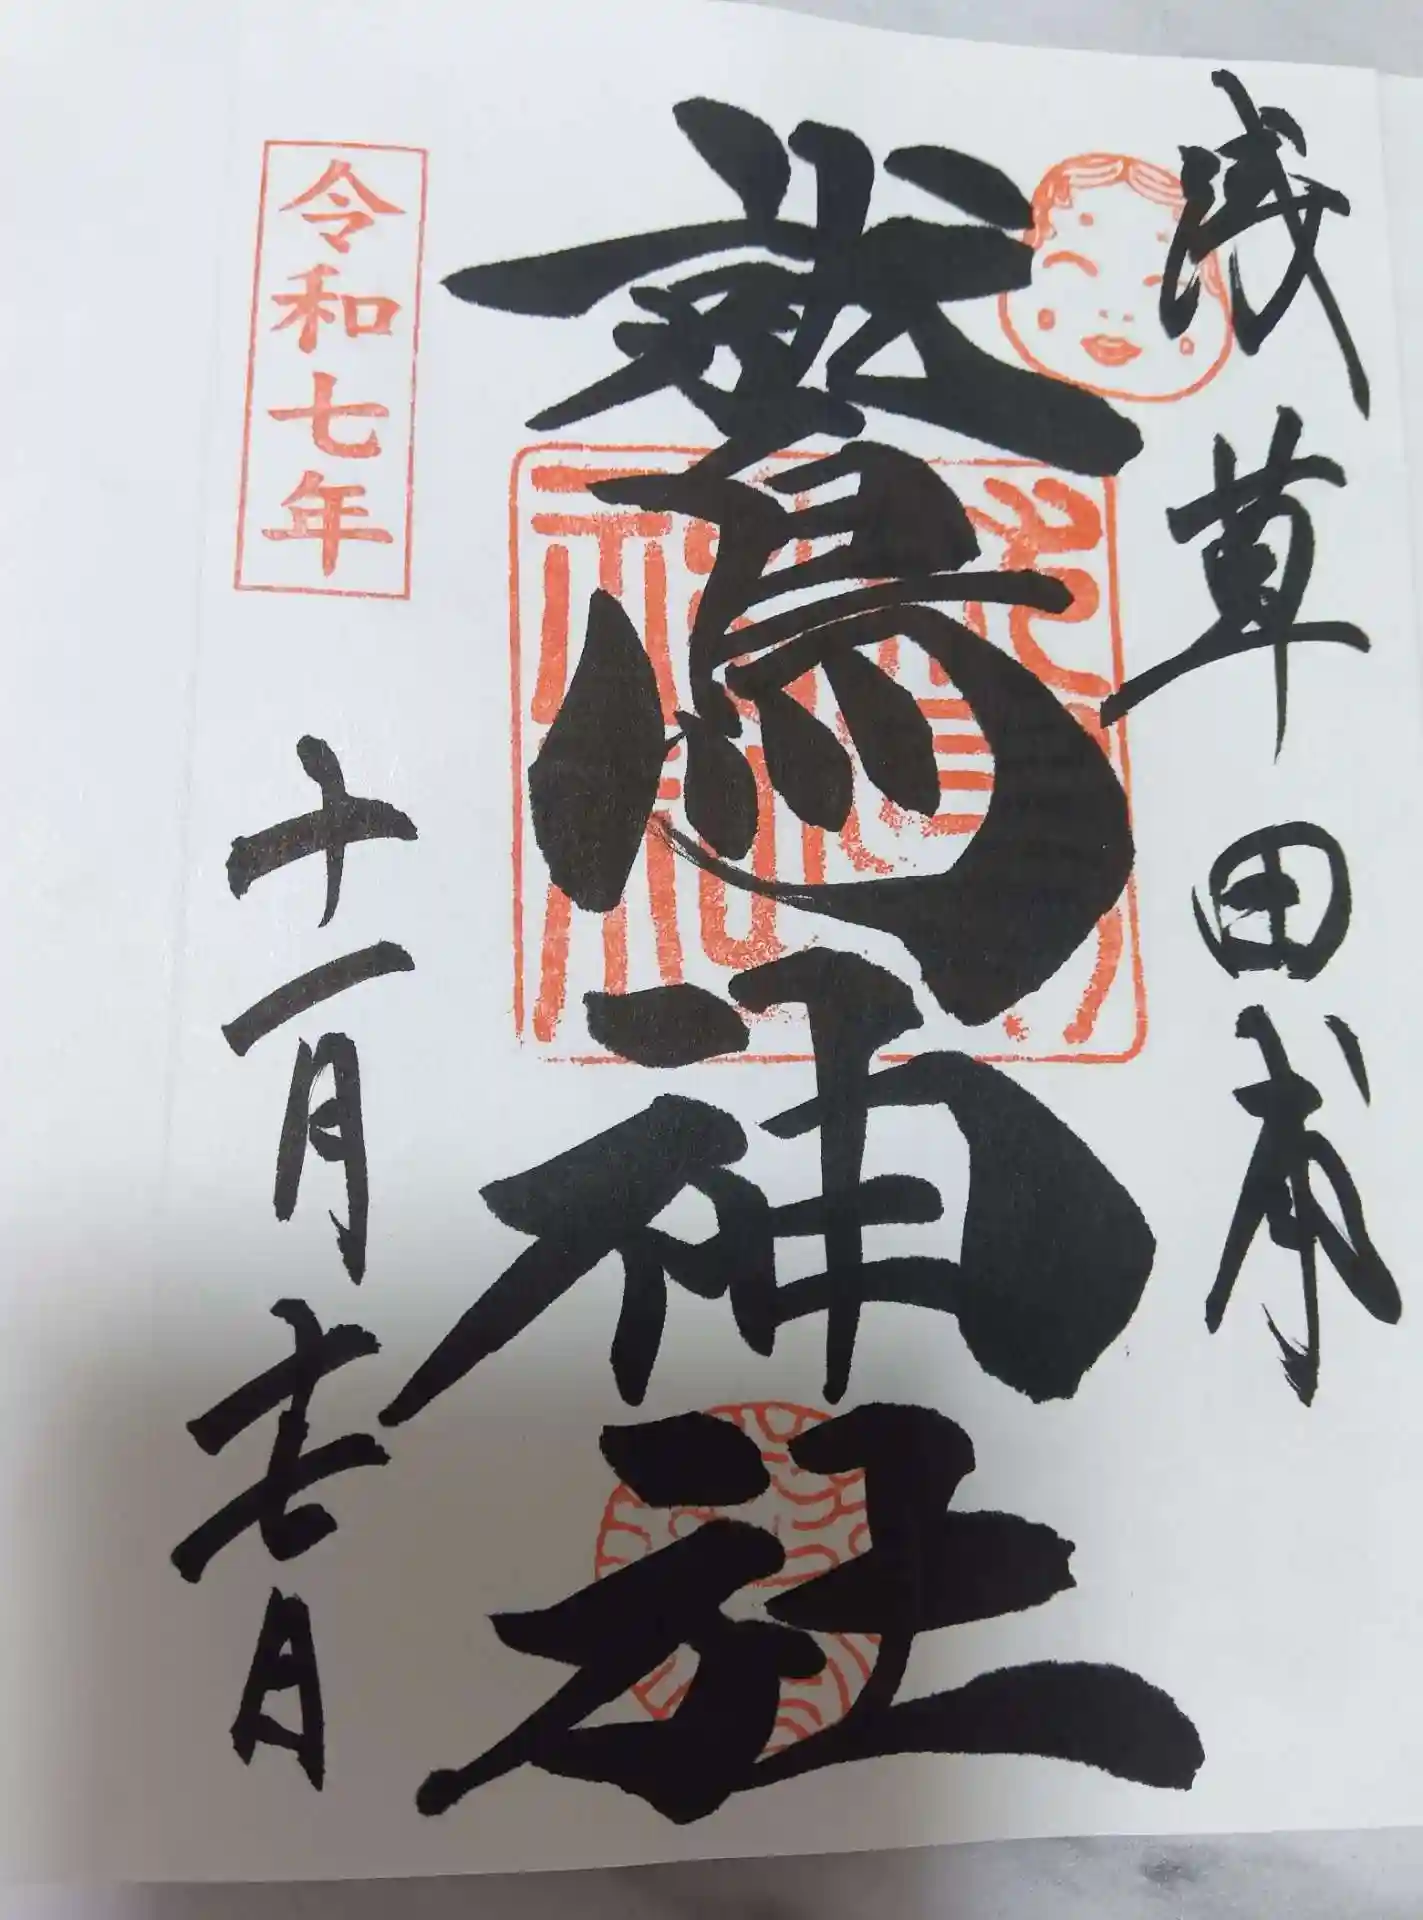 浅草田甫
鷲神社
令和七年
十一月十七日